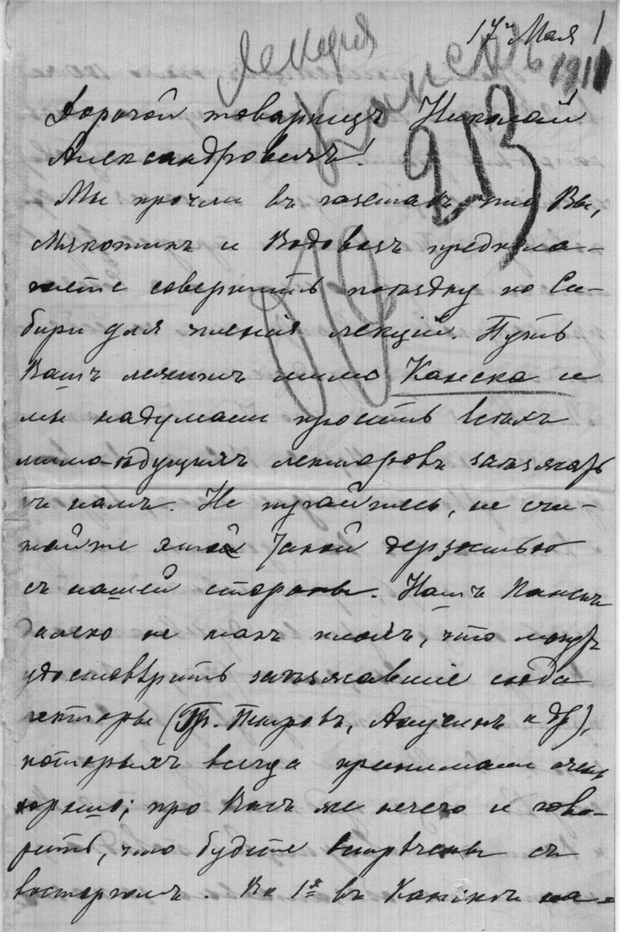 17го Мая 1911
Лекция
Канскъ
213
Дорогой товарищъ Николай
Александровичъ!
Мы прочли въ газетахъ, что Вы,
Мякотинъ и Водовозъ предпола-
гаете совершить поѣздку по Си-
бири для чтенія лекцій. Путь
Вашъ лежитъ мимо Канска и
мы надумали просить всѣхъ
мимо-ѣдущихъ лекторовъ заѣзжать
къ намъ. Не пугайтесь, не счи-
тайте такой дерзостью
съ нашей стороны. Нашъ Канскъ
далеко не такъ плохъ, что могутъ
удостовѣрить заѣзжавшіе сюда
лекторы (Гр. Петровъ, Анучинъ и др),
которыхъ всегда принимали очень
хорошо; про Васъ же нечего и гово-
рить, что будете встрѣчены съ
восторгомъ. Во 1х въ Канскѣ на-